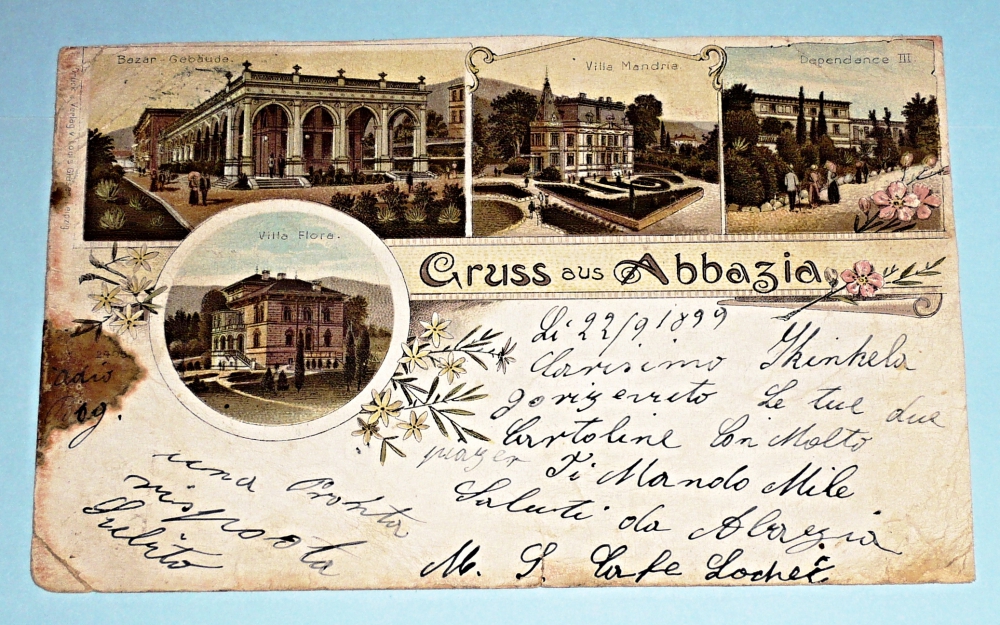 Bazar-Gebäude.
Villa Mandria
Dependance III
Villa Flora.
Gruss aus Abbazia
Li 22/9 1899
Carisimo
Le tue due
Cartoline Con Molto
piazer Ti Mando Mile
Saluti da Abazia
M. S. Cafe
adio
una Pronta
risposta
Subito